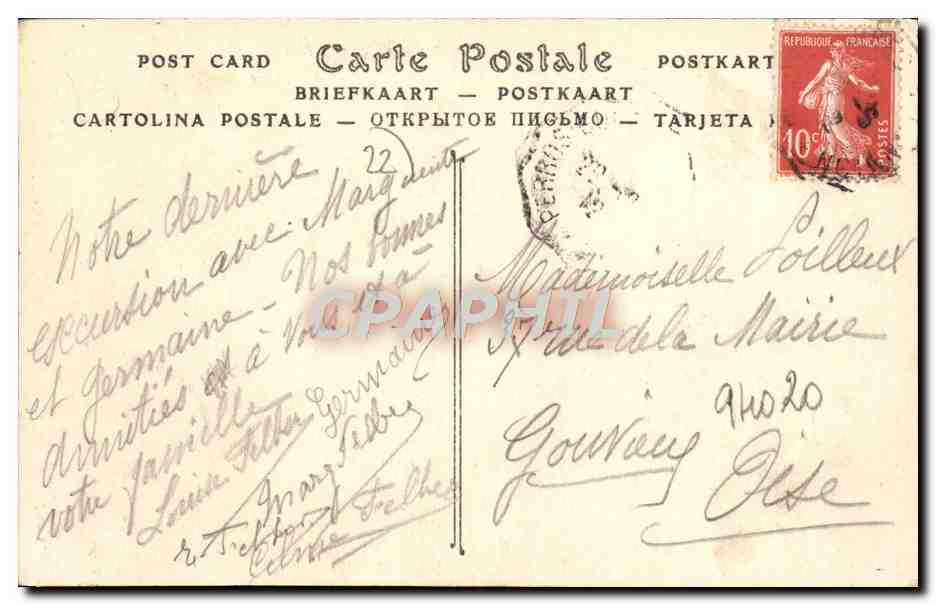 POST CARD Carte Postale POSTKART
BRIEFKAART — POSTKAART
CARTOLINA POSTALE — ОТКРЫТОЕ ПИСЬМО — TARJETA
REPUBLIQUE FRANÇAISE
10c POSTES
PERROS
22
Notre dernière
excursion avec Marguerite
et Germaine - Nos bonnes
amitiés à vous et à
votre famille
Louise Felber Germaine
Marg Felber
Felber
Mademoiselle Loilleux
37 rue de la Mairie
Gouvieux
Oise
94020
CPAPHIL